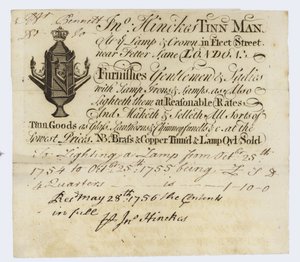 Bennett
Jno. Hinckes TINN MAN.
At ye Lamp & Crown in Fleet Street
near Fetter Lane LONDON.
Furnishes Gentlemen & Ladies
with Lamp Irons & Lamps, as also
Lighteth them at Reasonable Rates
And Maketh & Selleth All Sorts of
Tinn Goods as Lanthorns & Chimney &c. at the
Lowest Prices. NB. Brass & Copper Tinn'd & Lamp Oyl Sold
Lighting a Lamp from Octr. 25th
1754 to Octr 25th 1755 being
4 Quarters 1-10-0
Recd May 28th 1756 the Contents
in full
Jno Hinckes